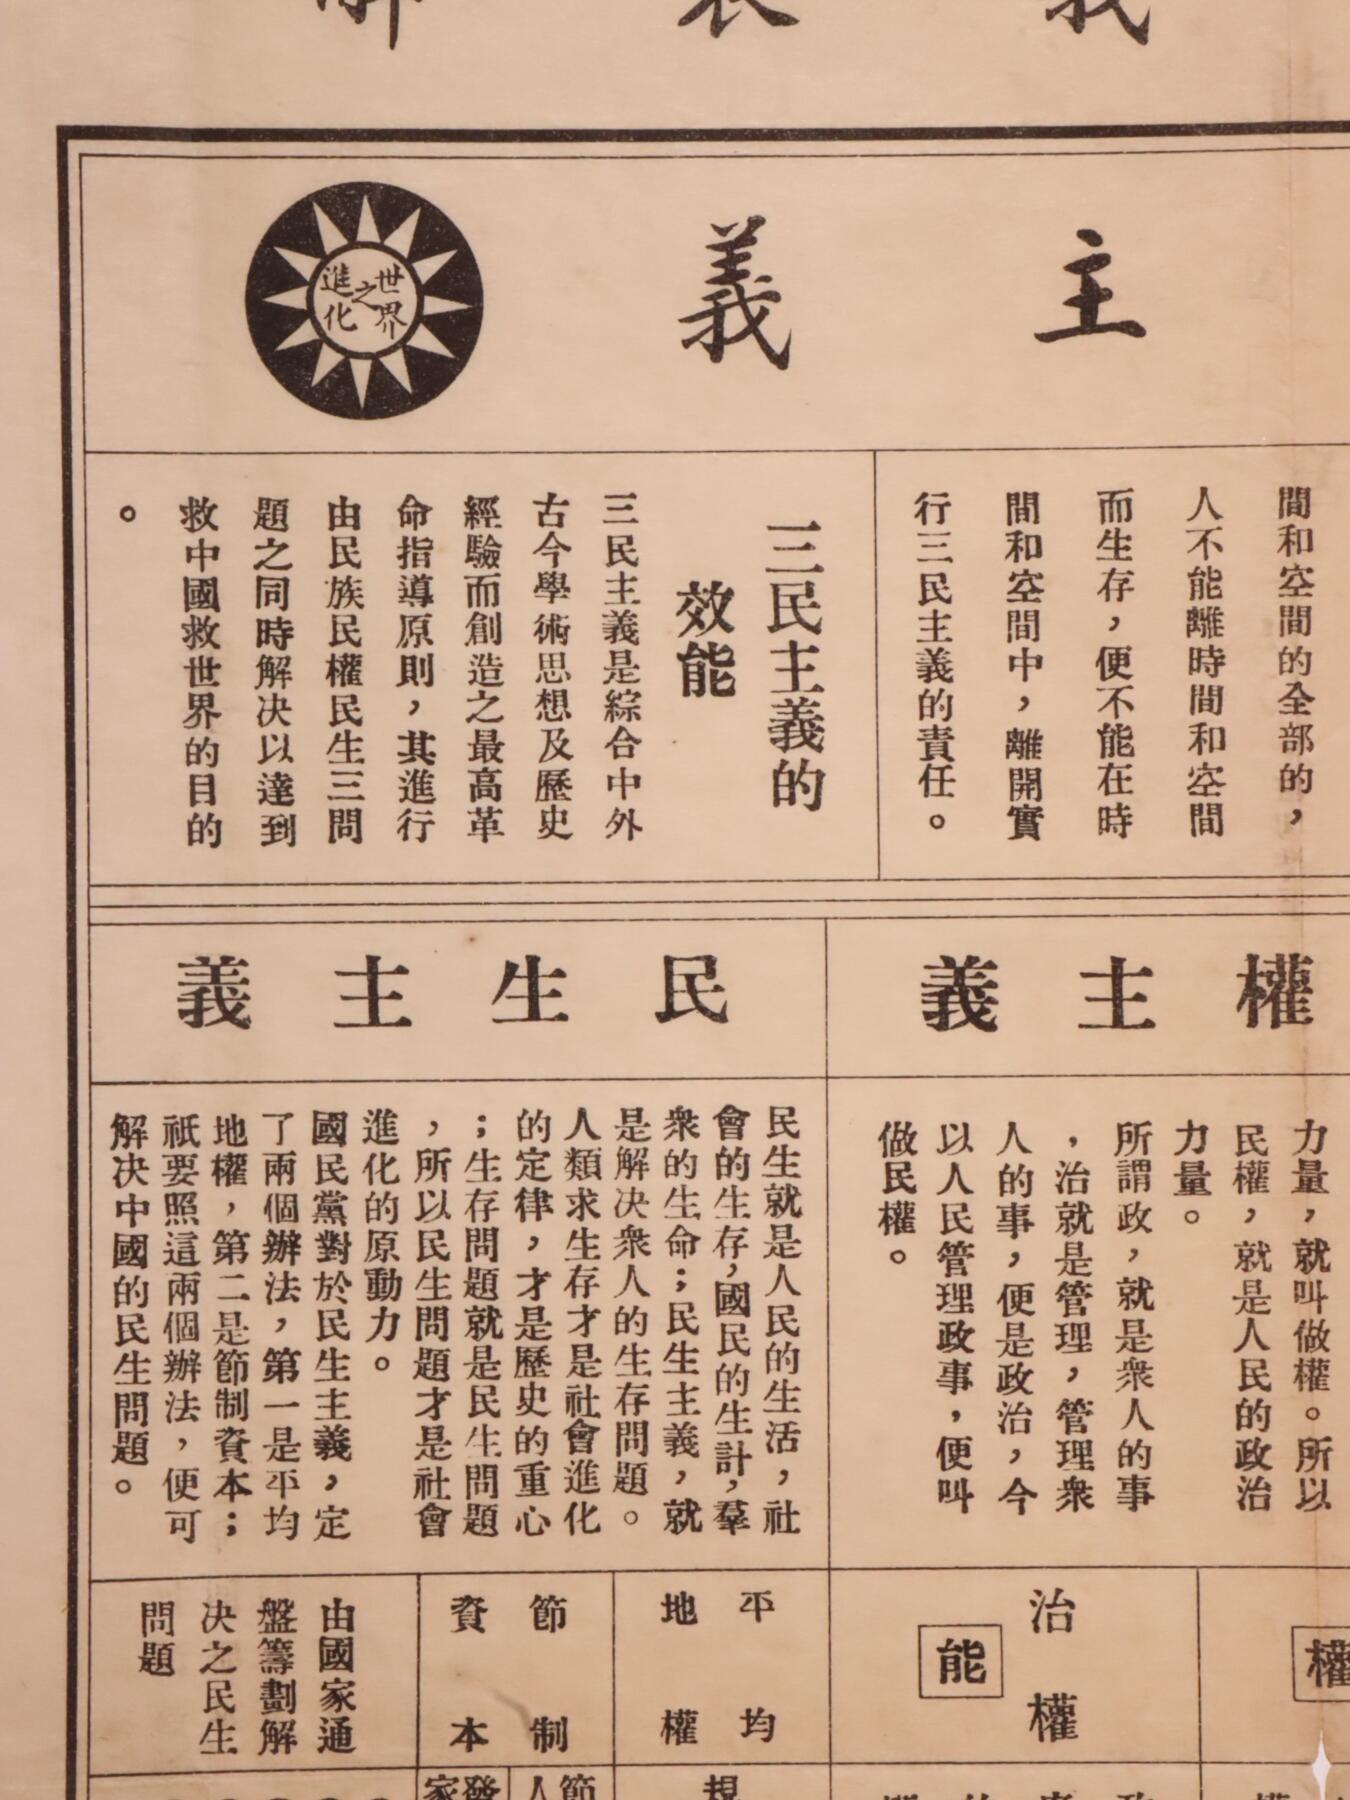 義表解
主義
世界之進化
間和空間的全部的，
人不能離時間和空間
而生存，便不能在時
間和空間中，離開實
行三民主義的責任。
三民主義的
效能
三民主義是綜合中外
古今學術思想及歷史
經驗而創造之最高革
命指導原則，其進行
由民族民權民生三問
題之同時解决以達到
救中國救世界的目的
。
權主義
力量，就叫做權。所以
民權，就是人民的政治
力量。
所謂政，就是衆人的事
，治就是管理，管理衆
人的事，便是政治，今
以人民管理政事，便叫
做民權。
民生主義
民生就是人民的生活，社
會的生存，國民的生計，羣
衆的生命；民生主義，就
是解决衆人的生存問題。
人類求生存才是社會進化
的定律，才是歷史的重心
；生存問題就是民生問題
，所以民生問題才是社會
進化的原動力。
國民黨對於民生主義，定
了兩個辦法，第一是平均
地權，第二是節制資本；
祇要照這兩個辦法，便可
解决中國的民生問題。
權
治權
能
平均
地權
節制
資本
由國家通
盤籌劃解
决之民生
問題
規
節
人
發
家